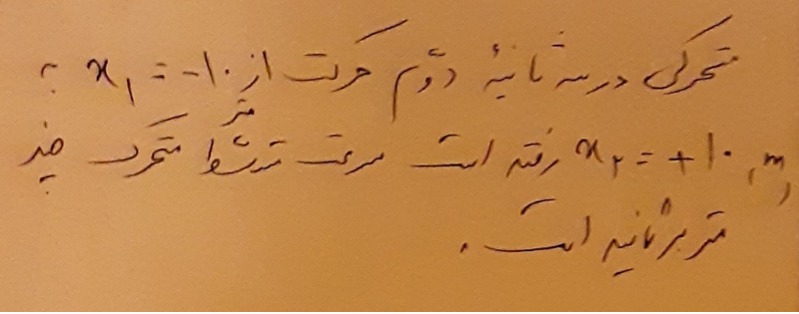 متحرکی در سه ثانیهٔ دوّم حرکت از x₁ = -۱۰ متر به
x₂ = +۱۰ m رفته است سرعت متوسط متحرک چند
متر بر ثانیه است.